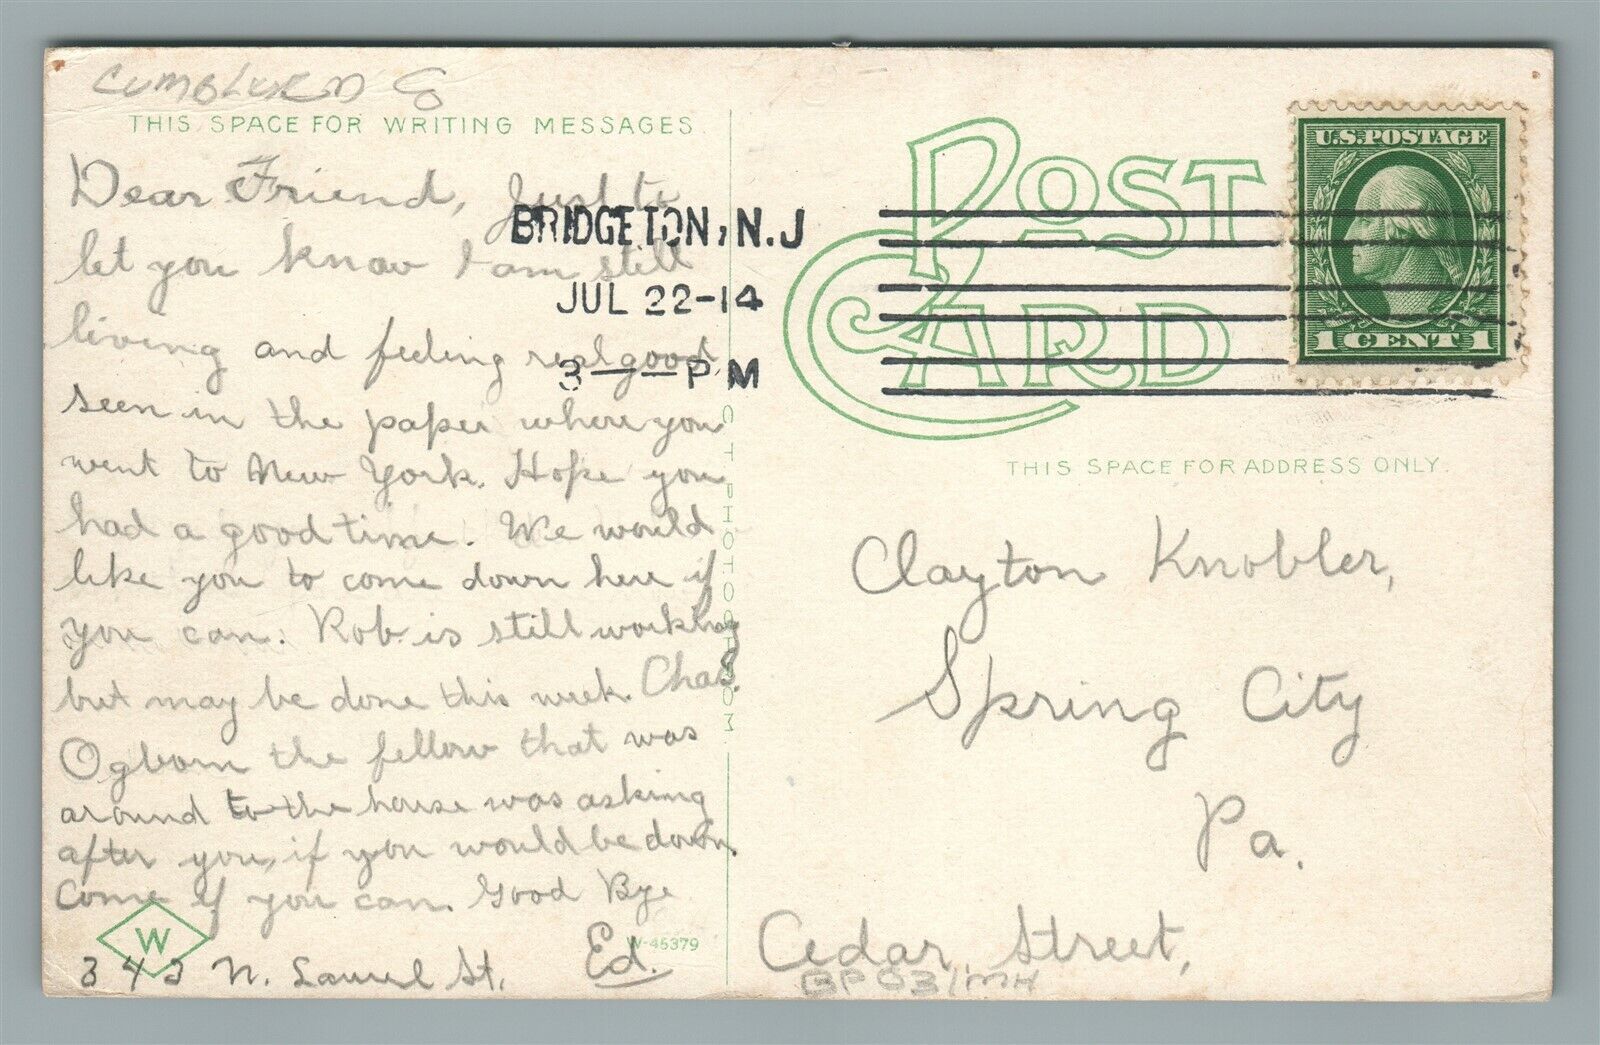 THIS SPACE FOR WRITING MESSAGES
Dear Friend, Just to
let you know I am still
living and feeling real good
seen in the paper where you
went to New York. Hope you
had a good time. We would
like you to come down here if
you can. Rob. is still working
but may be done this week. Chas.
Ogborn the fellow that was
around to the house was asking
after you, if you would be down.
Come if you can. Good Bye
Ed.
N. Laurel St.
W
W-45379
C T PHOTOCHROM
BRIDGETON, N.J
JUL 22-14
3 — PM
POST
CARD
U.S. POSTAGE
1 CENT 1
THIS SPACE FOR ADDRESS ONLY.
Clayton Knobler,
Spring City
Pa.
Cedar Street,